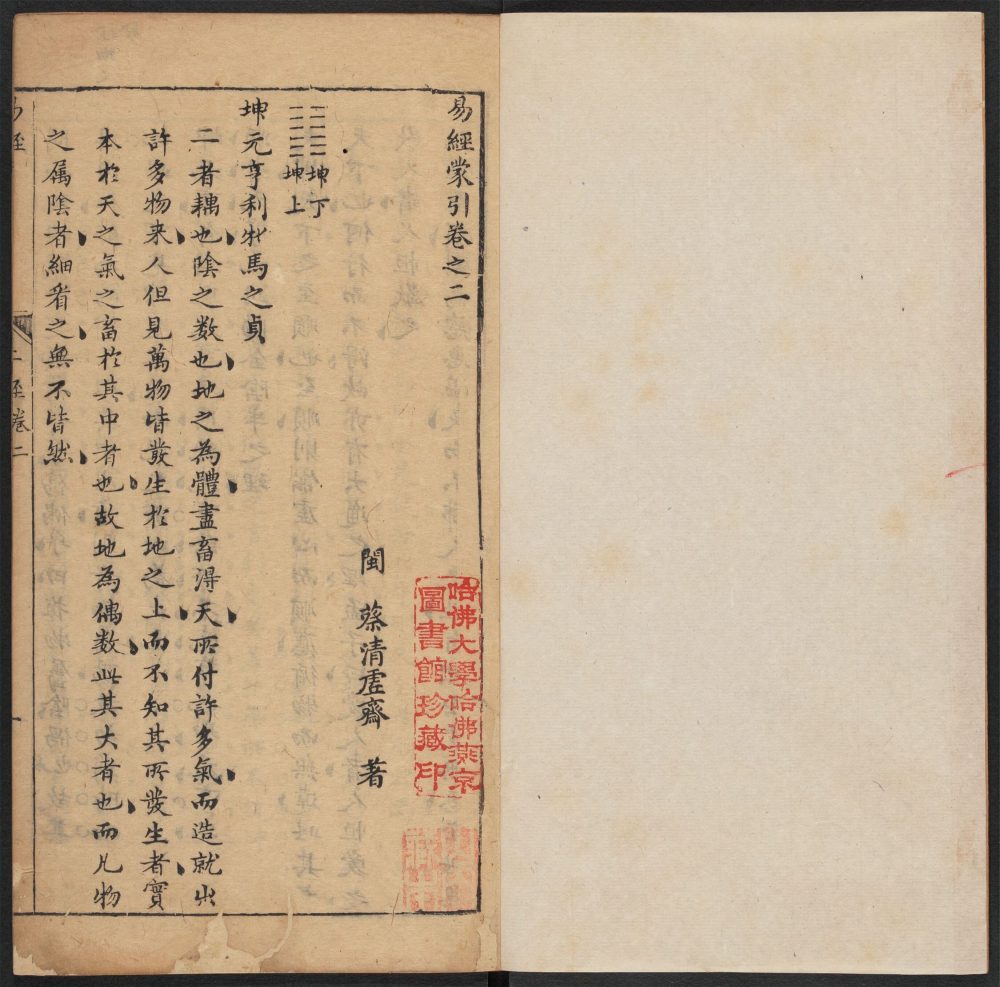 易經蒙引卷之二
閩 蔡清虛齋 著
哈佛大學哈佛燕京
圖書館珍藏印
坤下
坤上
坤元亨利牝馬之貞
二者耦也陰之数也地之為體盡畜得天所付許多氣而造就出
許多物来人但見萬物皆發生於地之上而不知其所發生者實
本於天之氣之畜於其中者也故地為偶数此其大者也而凡物
之属陰者細看之無不皆然
易經
上經卷二
一